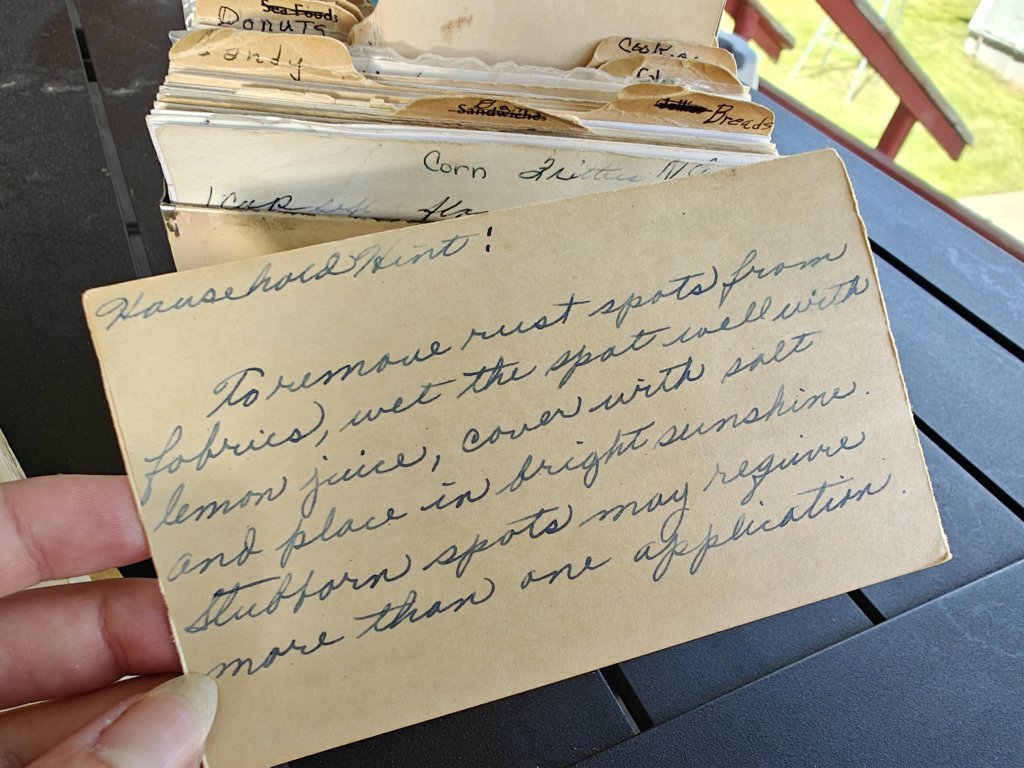 Sea Foods
Donuts
Candy
Sandwiches
Breads
Corn Fritters
1 cup
Household Hint:
To remove rust spots from
fabrics, wet the spot well with
lemon juice, cover with salt
and place in bright sunshine.
Stubborn spots may require
more than one application.